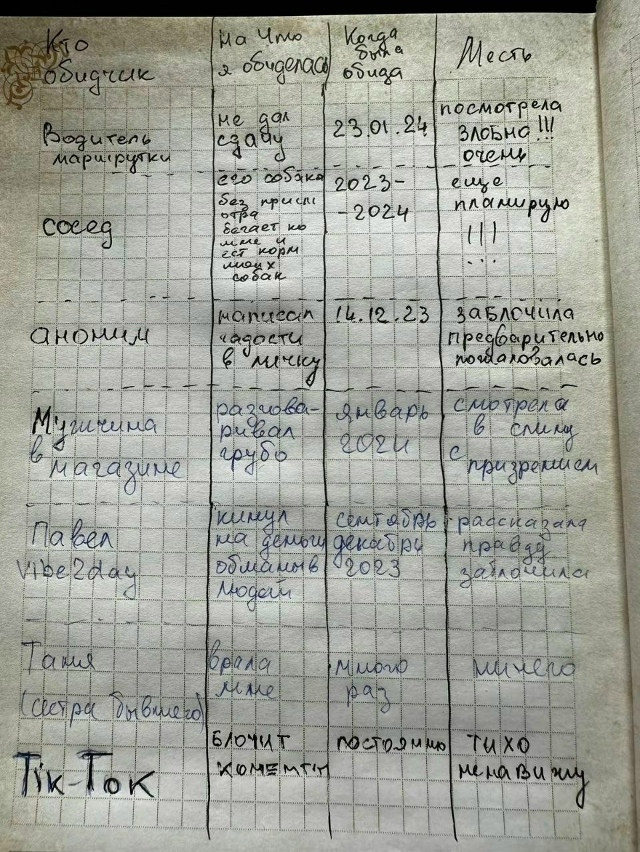 Кто обидчик
на что я обиделась
Когда была обида
Месть
Водитель маршрутки
не дал сдачу
23.01.24
посмотрела злобно!!! очень
сосед
его собака без присм отра бегает ко мне и ест корм моих собак
2023- -2024
еще планирую !!! ...
аноним
написал гадости в личку
14.12.23
заблочила предварительно пожаловалась
Мужчина в магазине
разгова- ривал грубо
январь 2024
смотрела в спину с призрением
Павел Vibe2day
кинул на деньги обманыв людей
сентябрь декабрь 2023
рассказала правду заблочила
Таня (сестра бывшего)
врала мне
много раз
ничего
Тik-Ток
блочит коменты
постоянно
тихо ненавижу